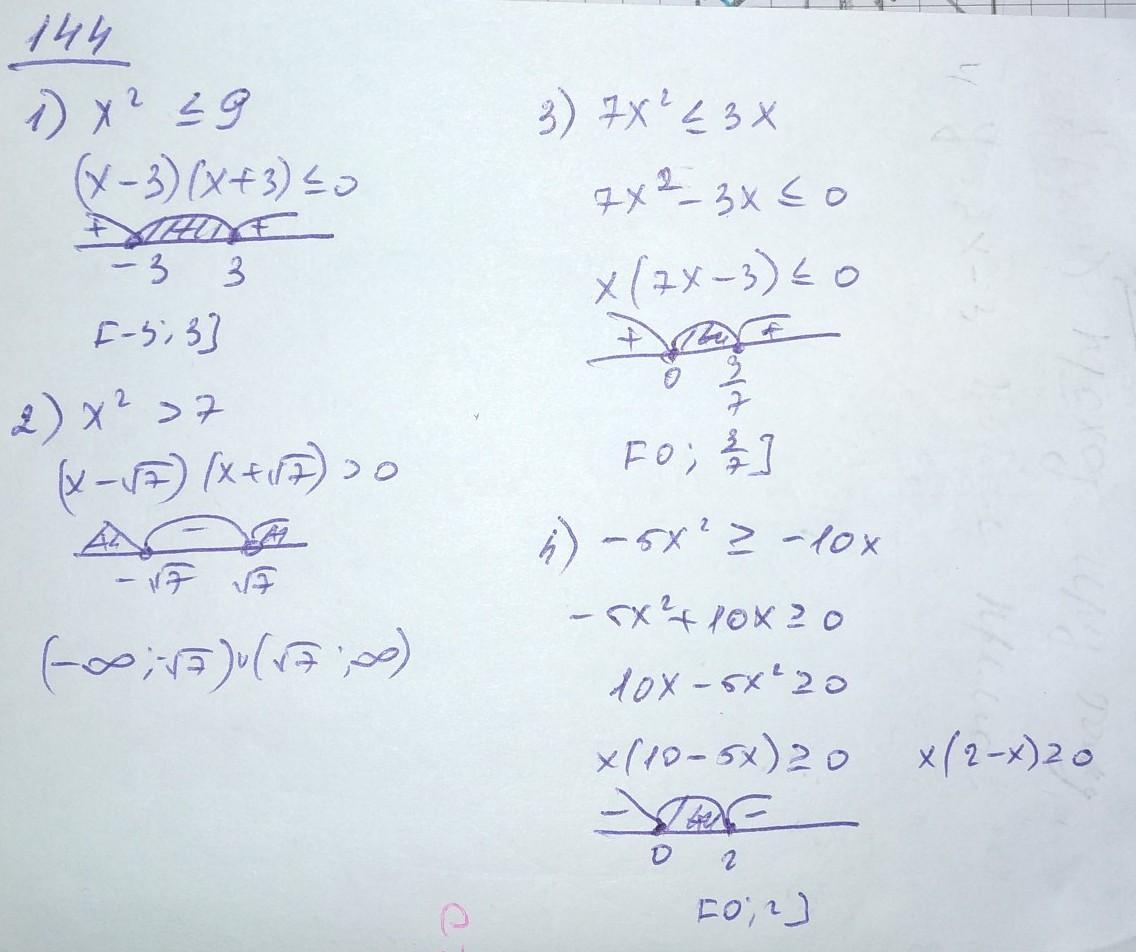 144
1) x² ≤ 9
(x-3)(x+3) ≤ 0
+ +
-3 3
[-3; 3]
2) x² > 7
(x-√7)(x+√7) > 0
-
-√7 √7
(-∞; -√7)∪(√7; ∞)
3) 7x² ≤ 3x
7x² - 3x ≤ 0
x(7x-3) ≤ 0
+ +
0 3/7
[0; 3/7]
4) -5x² ≥ -10x
-5x² + 10x ≥ 0
10x - 5x² ≥ 0
x(10-5x) ≥ 0 x(2-x) ≥ 0
- -
0 2
[0; 2]